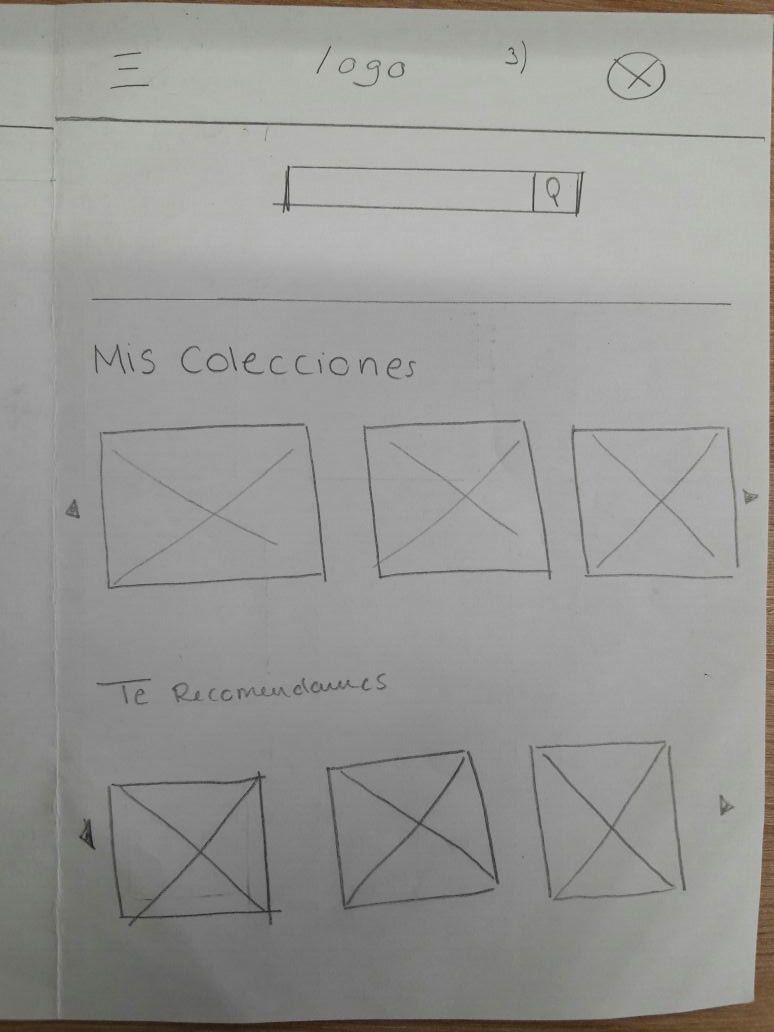 logo 3)
Mis Colecciones
Te Recomendamos